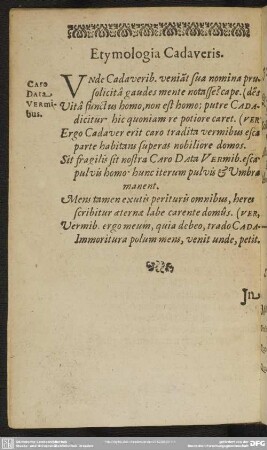 Etymologia Cadaveris.
Caro
Data
Vermi-
bus.
VNde Cadaverib. veniãt sua nomina pru-
solicitâ gaudes mente notasse? cape. (dẽs
Vitâ functus homo, non est homo; putre CADA-
dicitur hic quoniam re potiore caret. (VER
Ergo Cadaver erit caro tradita vermibus esca
parte habitans superas nobiliore domos.
Sit fragilis sit nostra CARO DATA VERMIb. esca
pulvis homo hunc iterum pulvis & Umbra
manent.
Mens tamen exutis perituris omnibus, heres
scribitur æternæ labe carente domûs. (VER,
Vermib. ergo meum, quia debeo, trado CADA-
Immoritura polum mens, venit unde, petit.
Jn
DFG